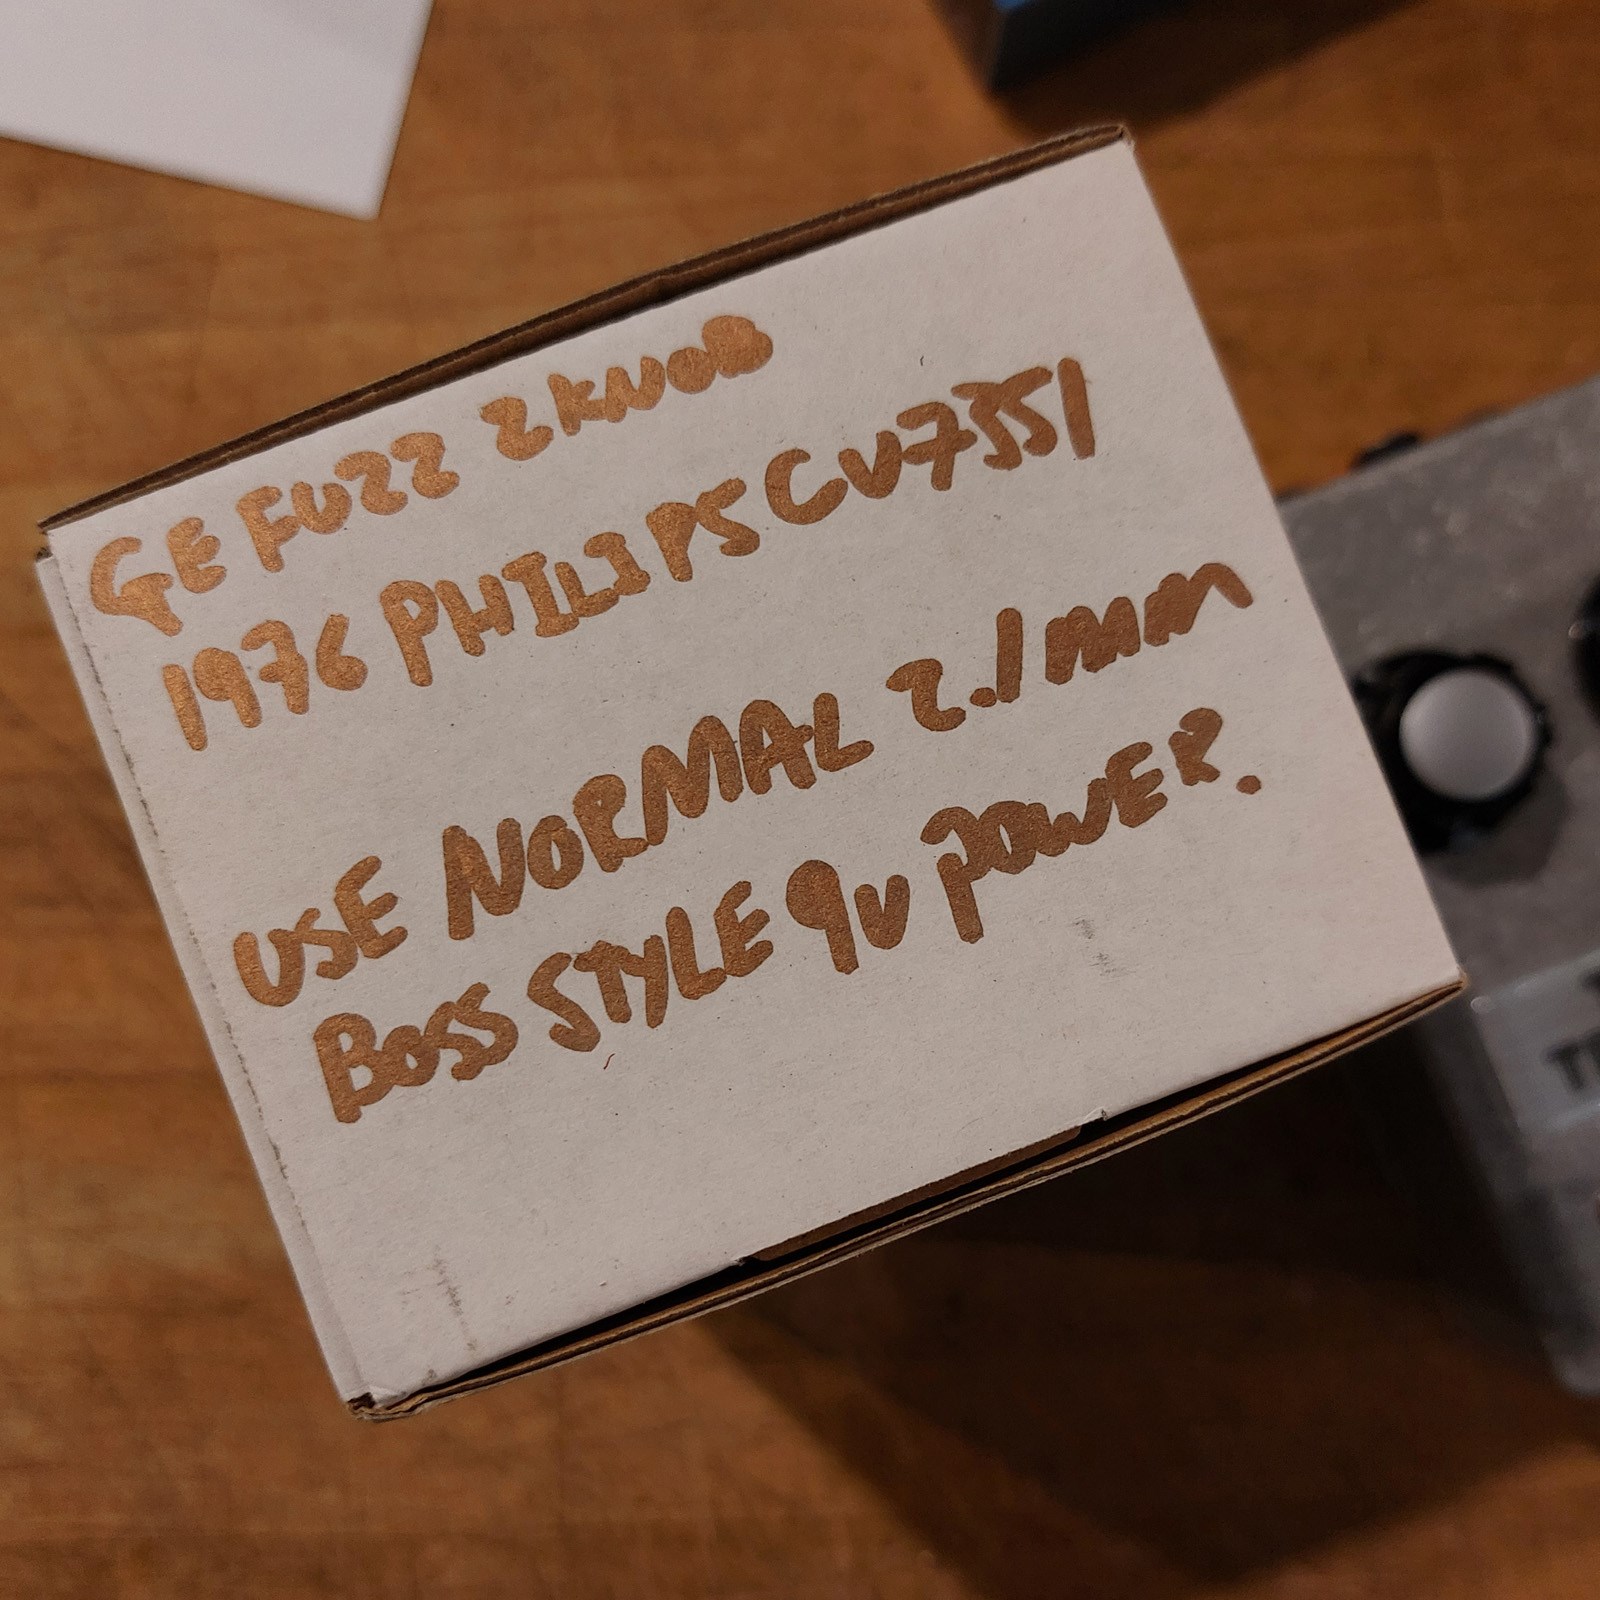 GE FUZZ 2 KNOB
1976 PHILIPS CV7351
USE NORMAL 2.1mm
BOSS STYLE 9V POWER.